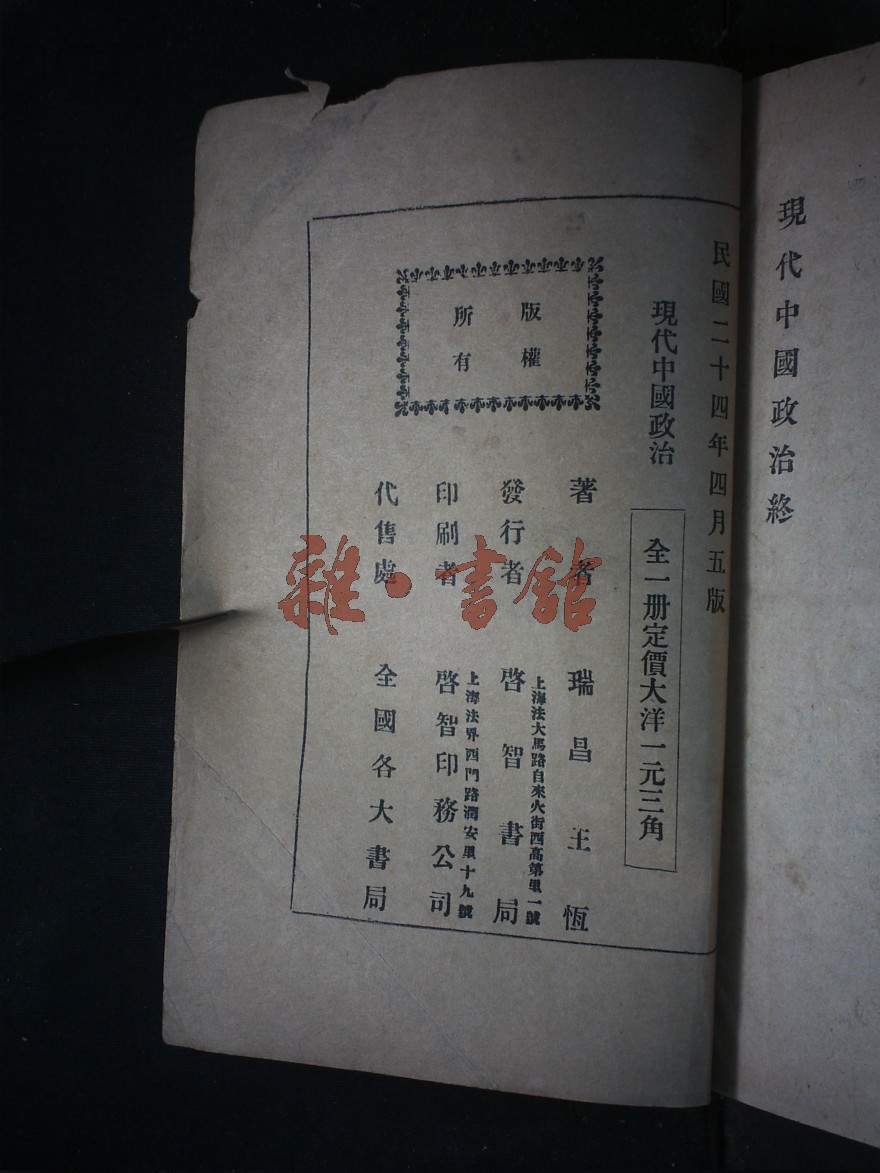 現代中國政治終
民國二十四年四月五版
現代中國政治
全一册定價大洋一元三角
版權
所有
著者 瑞昌王恆
上海法大馬路自來火街西高第里一號
發行者 啓智書局
上海法界西門路潤安里十九號
印刷者 啓智印務公司
代售處 全國各大書局
雜·書館